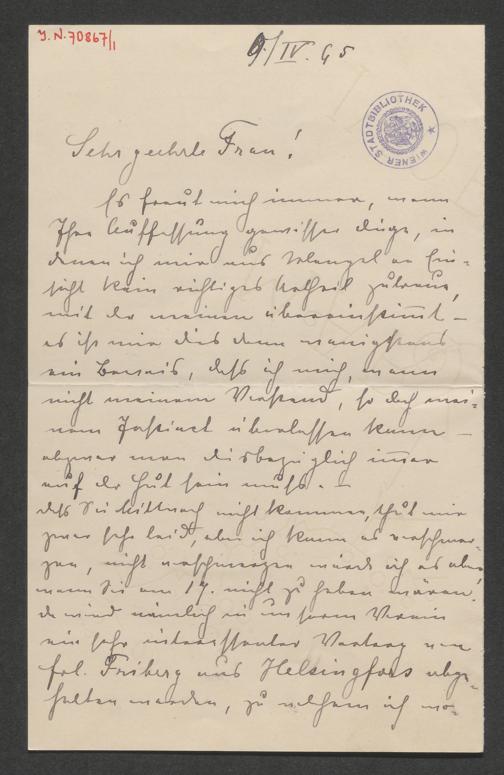 J.N. 70867/1
9./IV. 95
WIENER STADTBIBLIOTHEK
Sehr geehrte Frau!
Es freut mich immer, wenn
Ihre Auffassung gewisser Dinge, in
denen ich mir aus Mangel an Ein-
sicht kein richtiges Urtheil zutraue,
mit der meinen übereinstimmt –
es ist mir dies dann wenigstens
ein Beweis, daß ich mich, wenn
nicht meinem Verstand, so doch mei-
nem Instinct überlassen kann –
obzwar man diesbezüglich immer
auf der Hut sein muß. –
daß Sie Mittwoch nicht kommen, thut mir
zwar sehr leid, aber ich kann es verschmer-
zen, nicht verschmerzen würde ich es aber
wenn Sie am 17. nicht zu haben wären.
da wird nämlich in unserem Verein
ein sehr interessanter Vortrag von
Frl. Friberg aus Helsingfors abge-
halten werden, zu welchem ich